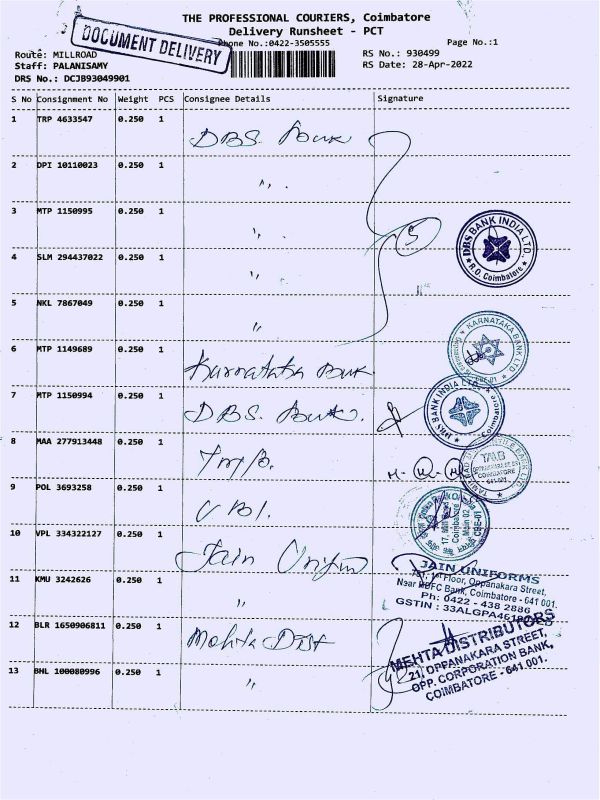 THE PROFESSIONAL COURIERS, Coimbatore
Delivery Runsheet - PCT
DOCUMENT DELIVERY
Phone No.:0422-3505555
Page No.:1
Route: MILLROAD
RS No.: 930499
Staff: PALANISAMY
RS Date: 28-Apr-2022
DRS No.: DCJB93049901
S No Consignment No Weight PCS Consignee Details Signature
1 TRP 4633547 0.250 1 DBS Bank
2 DPI 10110023 0.250 1 "
3 MTP 1150995 0.250 1 "
5
DBS BANK INDIA LTD.
R.O. Coimbatore
4 SLM 294437022 0.250 1 "
5 NKL 7867049 0.250 1 "
KARNATAKA BANK LTD
6 MTP 1149689 0.250 1 Karnataka Bank
7 MTP 1150994 0.250 1 DBS. Bank.
DBS BANK INDIA LTD.
Coimbatore
8 MAA 277913448 0.250 1 TMB.
TMB
COIMBATORE
641-001.
9 POL 3693258 0.250 1 UBI.
17, Mill Road
Coimbatore
Main 02
CBE-01
10 VPL 334322127 0.250 1 Jain Uniform
JAIN UNIFORMS
1st Floor, Oppanakara Street,
Near HDFC Bank, Coimbatore - 641 001.
Ph: 0422 - 438 2886
GSTIN : 33ALGPA461
11 KMU 3242626 0.250 1 "
12 BLR 1650906811 0.250 1 Mehta Dist
MEHTA DISTRIBUTORS
21, OPPANAKARA STREET,
OPP. CORPORATION BANK,
COIMBATORE - 641 001.
13 BHL 100080996 0.250 1 "